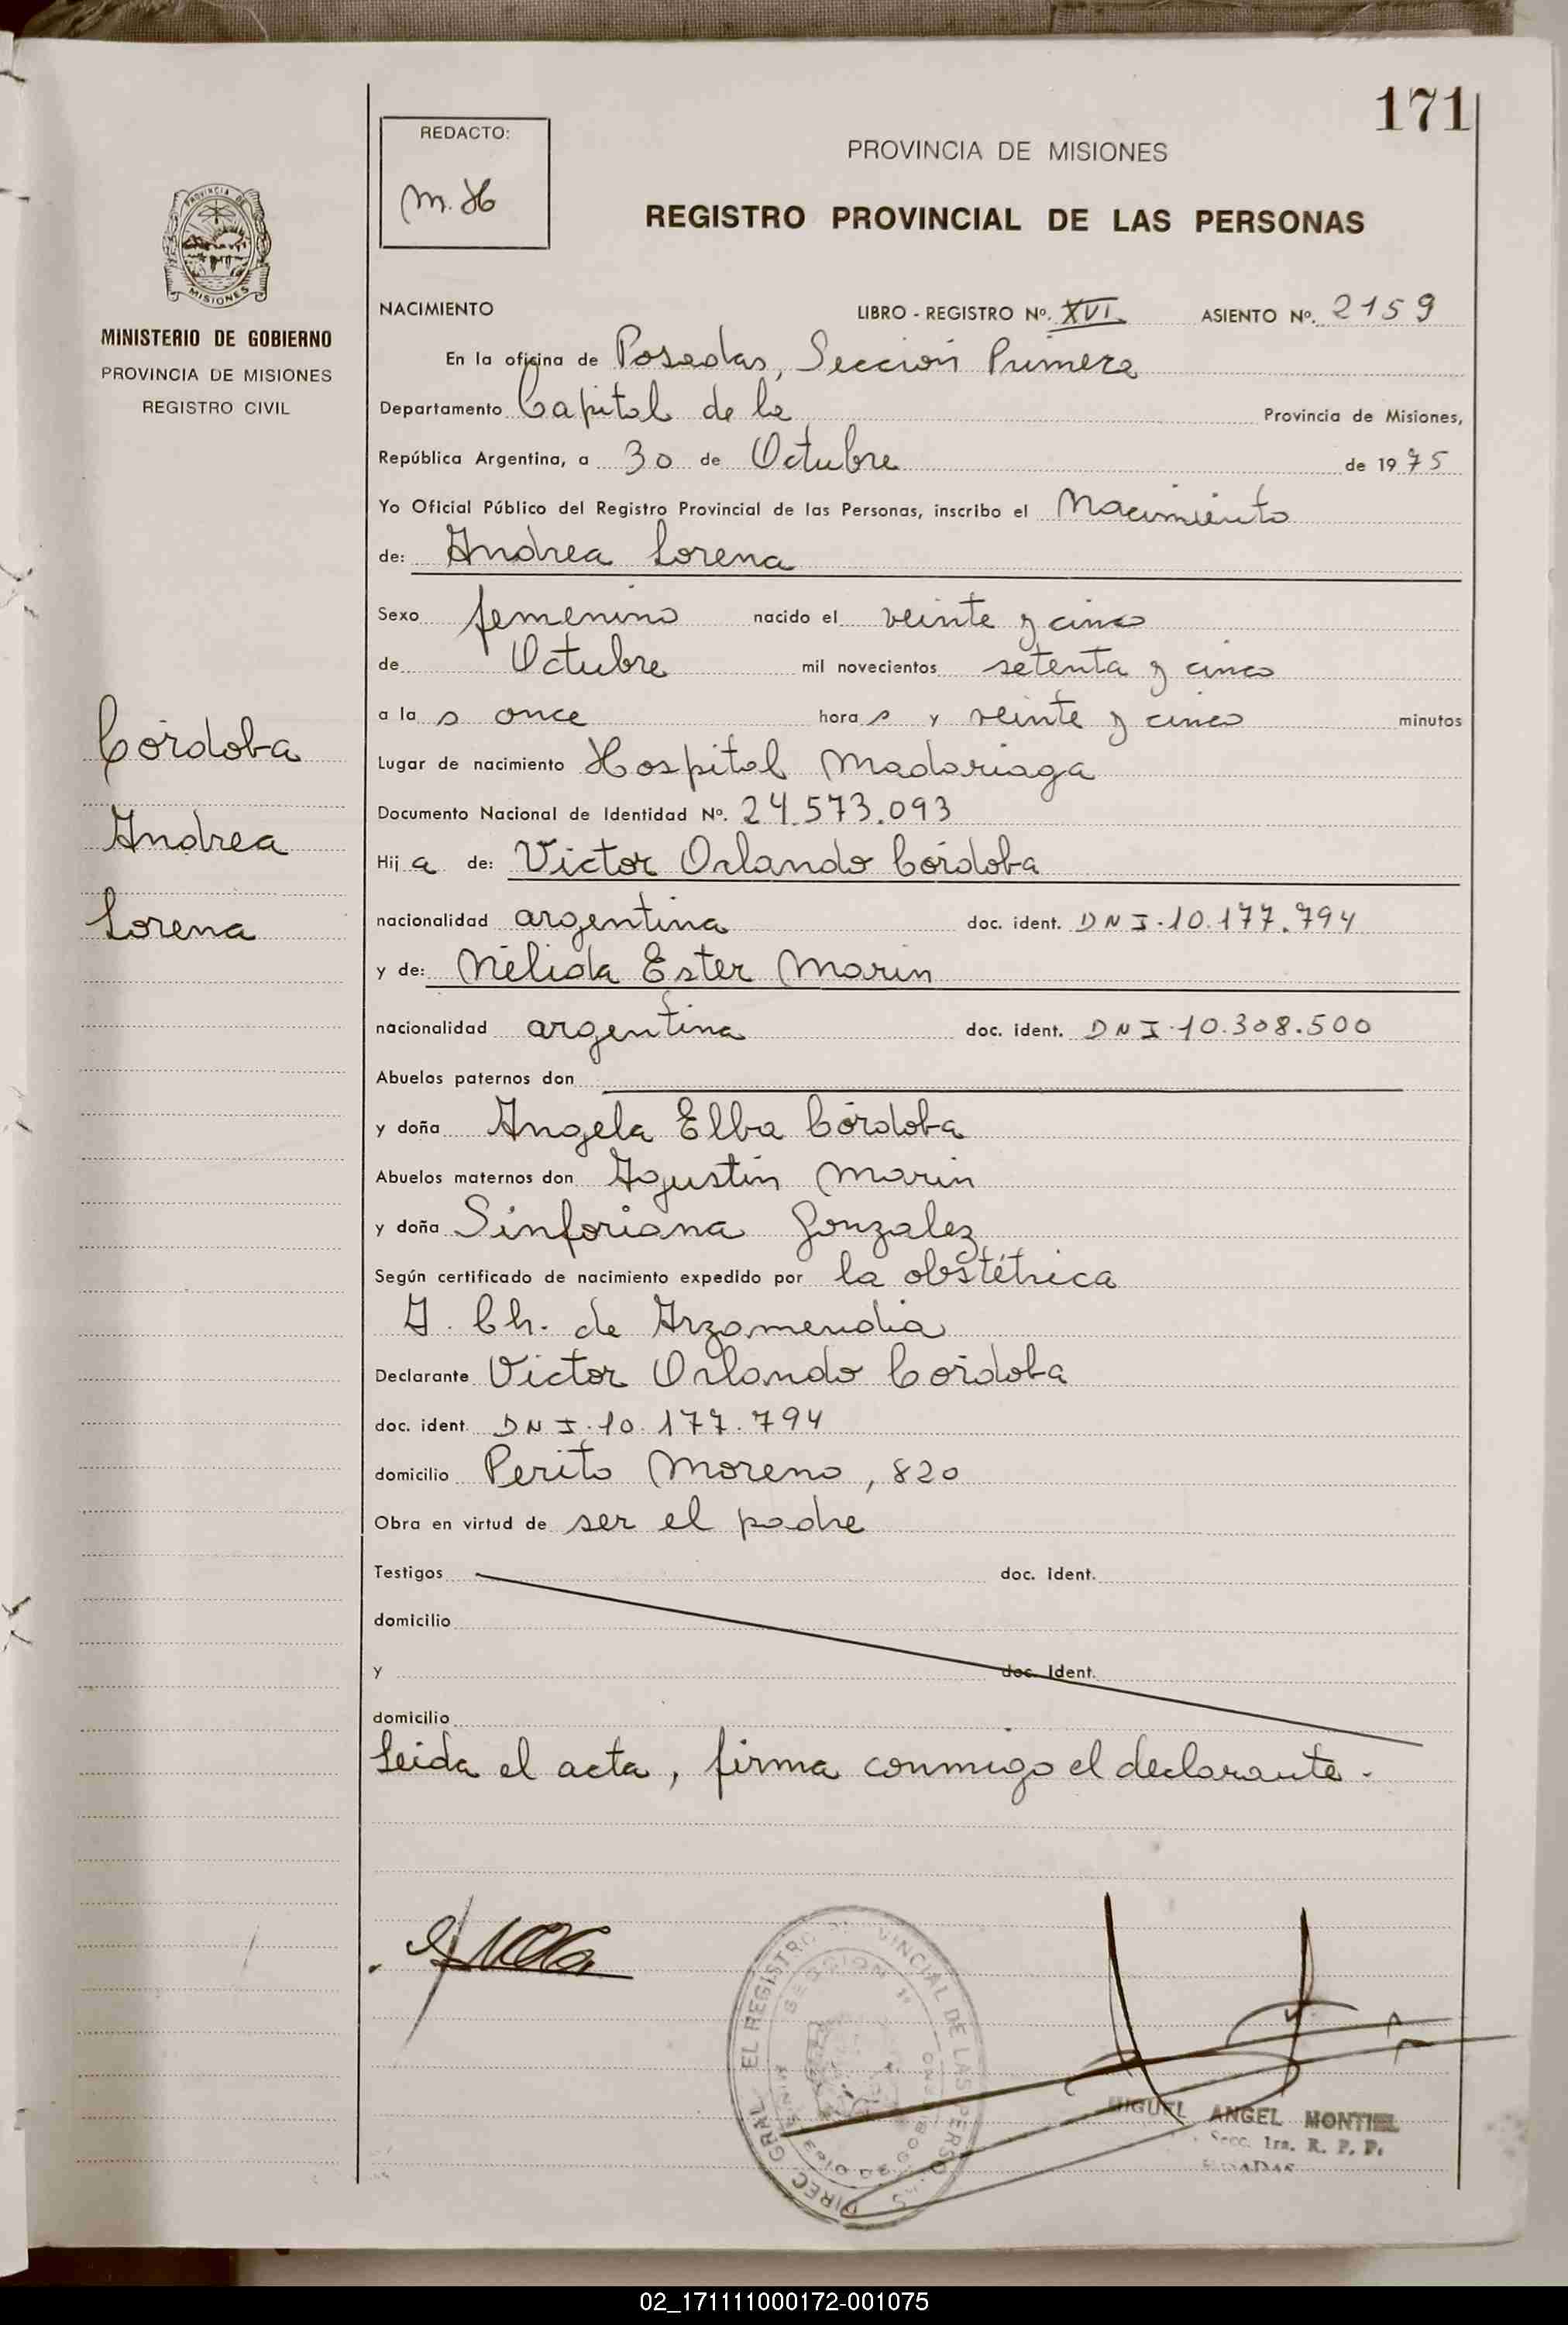 171
REDACTO:
M. H
PROVINCIA DE MISIONES
REGISTRO PROVINCIAL DE LAS PERSONAS
PROVINCIA DE
MISIONES
MINISTERIO DE GOBIERNO
PROVINCIA DE MISIONES
REGISTRO CIVIL
NACIMIENTO LIBRO - REGISTRO Nº. XVI ASIENTO Nº. 2159
En la oficina de Posadas, Sección Primera
Departamento Capital de la Provincia de Misiones,
República Argentina, a 30 de Octubre de 1975
Yo Oficial Público del Registro Provincial de las Personas, inscribo el Nacimiento
de: Andrea Lorena
Sexo femenino nacido el veinte y cinco
de Octubre mil novecientos setenta y cinco
a la s once hora s y veinte y cinco minutos
Córdoba
Andrea
Lorena
Lugar de nacimiento Hospital Madariaga
Documento Nacional de Identidad Nº. 24.573.093
Hij a de: Victor Orlando Córdoba
nacionalidad argentina doc. ident. DNI.10.177.794
y de: Nélida Ester Marin
nacionalidad argentina doc. ident. DNI.10.308.500
Abuelos paternos don
y doña Angela Elba Córdoba
Abuelos maternos don Agustín Marin
y doña Sinforiana Gonzalez
Según certificado de nacimiento expedido por la obstétrica
A. Ch. de Arzamendia
Declarante Victor Orlando Córdoba
doc. ident. DNI.10.177.794
domicilio Perito Moreno, 820
Obra en virtud de ser el padre
Testigos doc. ident.
domicilio
y doc. ident.
domicilio
Leida el acta, firma conmigo el declarante.
DIREC. GRAL. EL REGISTRO VINCIAL DE LAS PERSO
SECCION 1ª
MIGUEL ANGEL MONTIEL
Secc. 1ra. R. P. P.
POSADAS
02_171111000172-001075